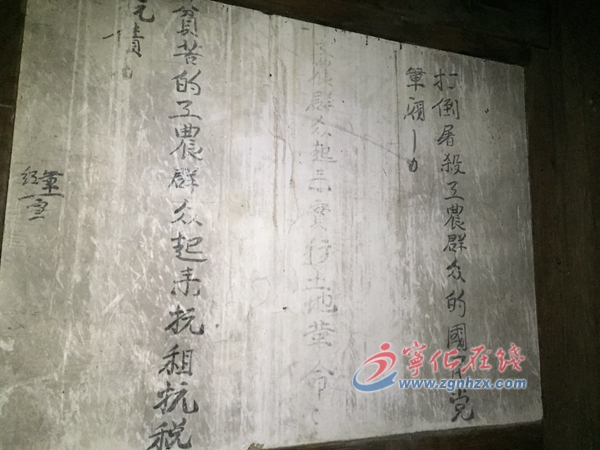 打倒屠殺工農群众的國民党
軍阀！
農群众起来實行土地革命
貧苦的工農群众起来抗租抗税
抗債
红軍
寧化在线
www.zgnhzx.com